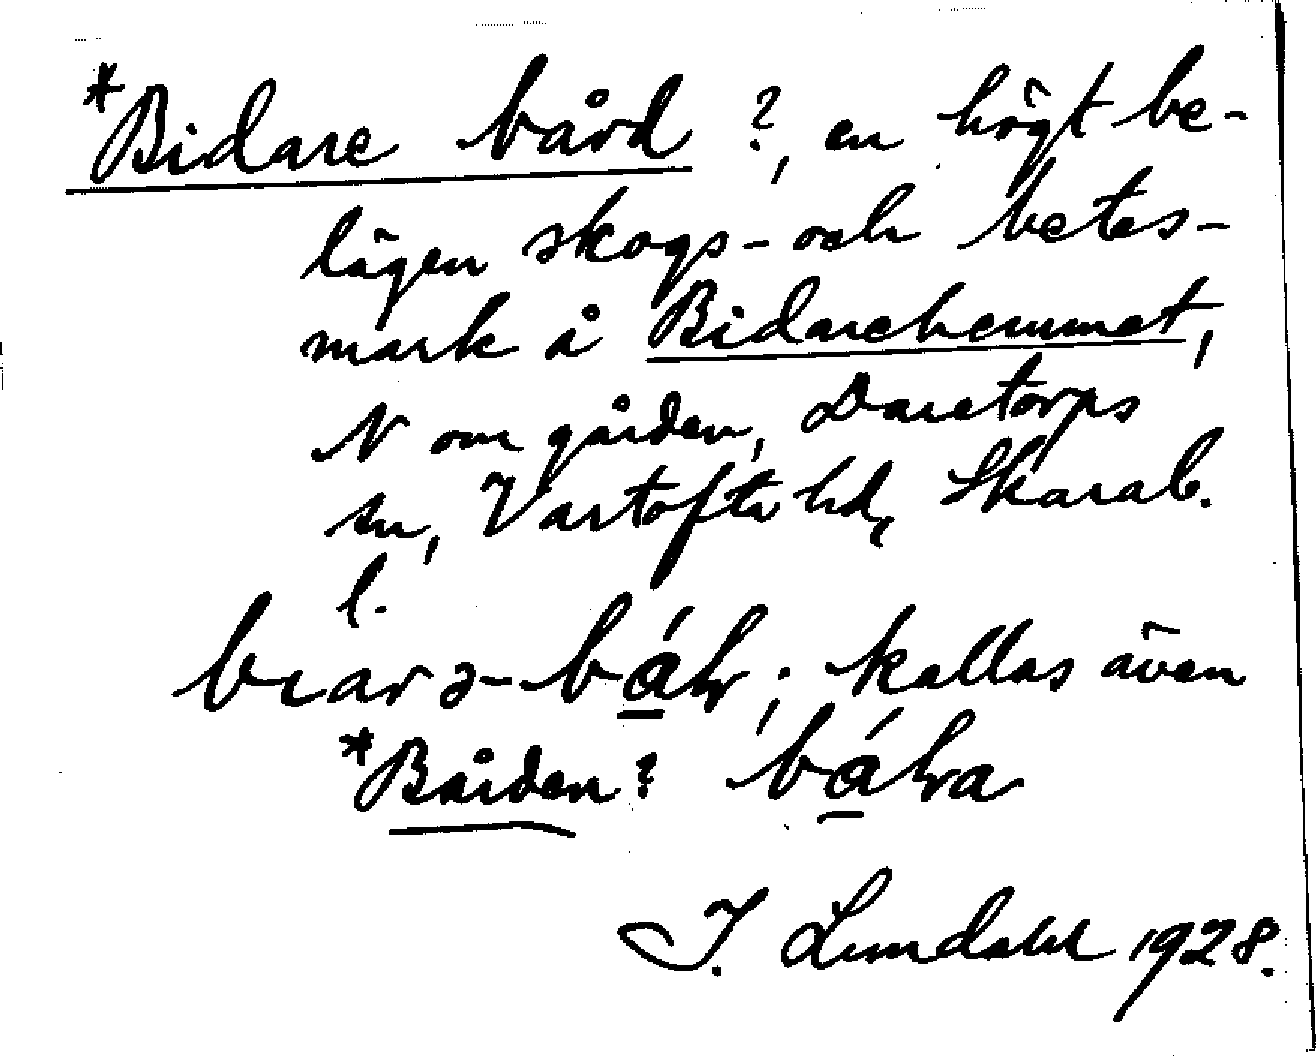 *Bidare bård ?, en högt be-
lägen skogs- och betes-
mark å Bidarehemmet,
N om gården, Daretorps
sn, Vartofta hd, Skarab.
l.
bıarə-bá̱hr; kallas även
*Bården? bá̱hra
I. Lundahl 1928.